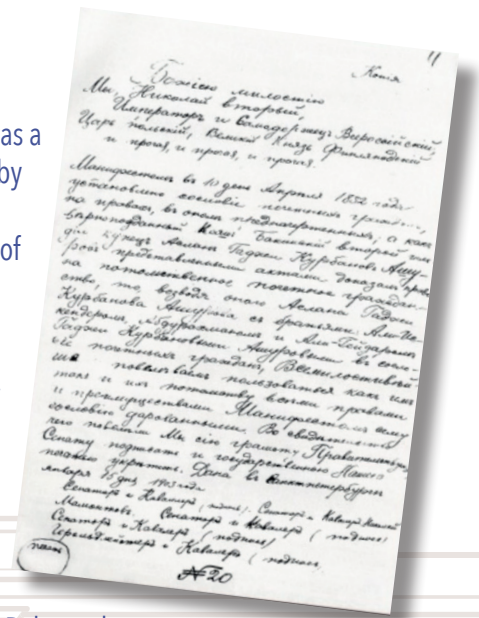 as a
by
of
11
Копія
Божіею милостію
Мы, Николай вторый,
Императоръ и Самодержецъ Всеросійскій,
Царь польскій, Великій Князь Финляндскій
и прочая, и прочая, и прочая.
Манифестомъ въ 10 день Апреля 1832 года
установлено сословіе почетныхъ гражданъ,
на правахъ, въ ономъ предначертанныхъ; а какъ
верноподданный Бакинскій второй гиль-
діи купецъ Асланъ Гаджи Курбановъ Ашу-
ровъ представленными актами доказалъ право
на потомственное почетное граждан-
ство, то возводя онаго Аслана Гаджи
Курбанова Ашурова съ братьями: Али-Ис-
кендеромъ, Абдурахманомъ и Али-Гейдаромъ
Гаджи Курбановыми Ашуровыми въ сосло-
віе почетныхъ гражданъ, Всемилостивый-
ше повелеваемъ пользоваться какъ имъ
такъ и ихъ потомству всеми правами
и преимуществами Манифестомъ сему
сословію дарованными. Во свидетельство
чего повелели Мы сію грамоту
Сенату подписать и государственною Нашею
печатью укрепить. Дана въ Санктпетербурге
января 15 дня 1903 года
Сенаторъ и Кавалеръ (подпись). Сенаторъ и Кавалеръ
Сенаторъ и Кавалеръ (подпись)
Сенаторъ и Кавалеръ (подпись)
Герольдмейстеръ и Кавалеръ (подпись)
№20